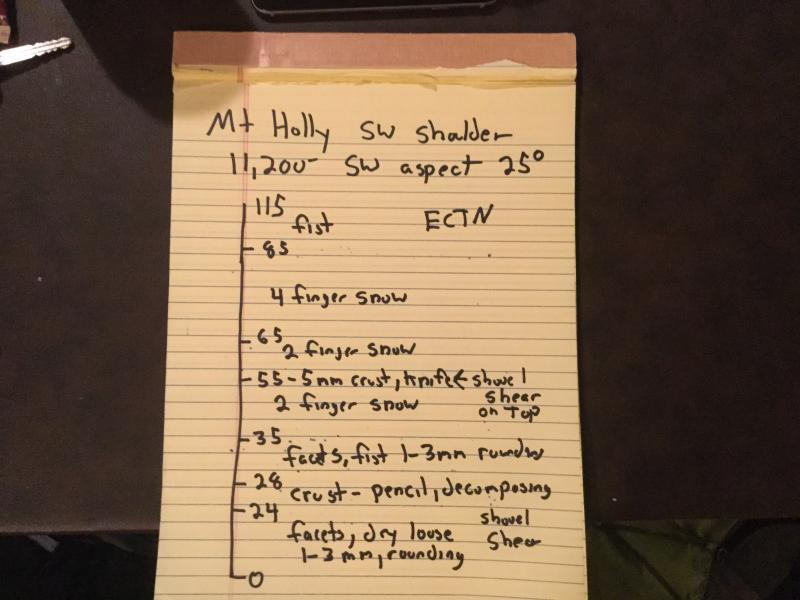 Mt Holly SW Shalder
11,200' SW aspect 25°
115
fist ECTN
85
4 finger snow
65
2 finger snow
55 - 5mm crust, knife ← shovel
shear
2 finger snow
on Top
35
facets, fist 1-3mm rounding
28
crust - pencil, decomposing
24
shovel
facets, dry loose
shear
1-3mm, rounding
0